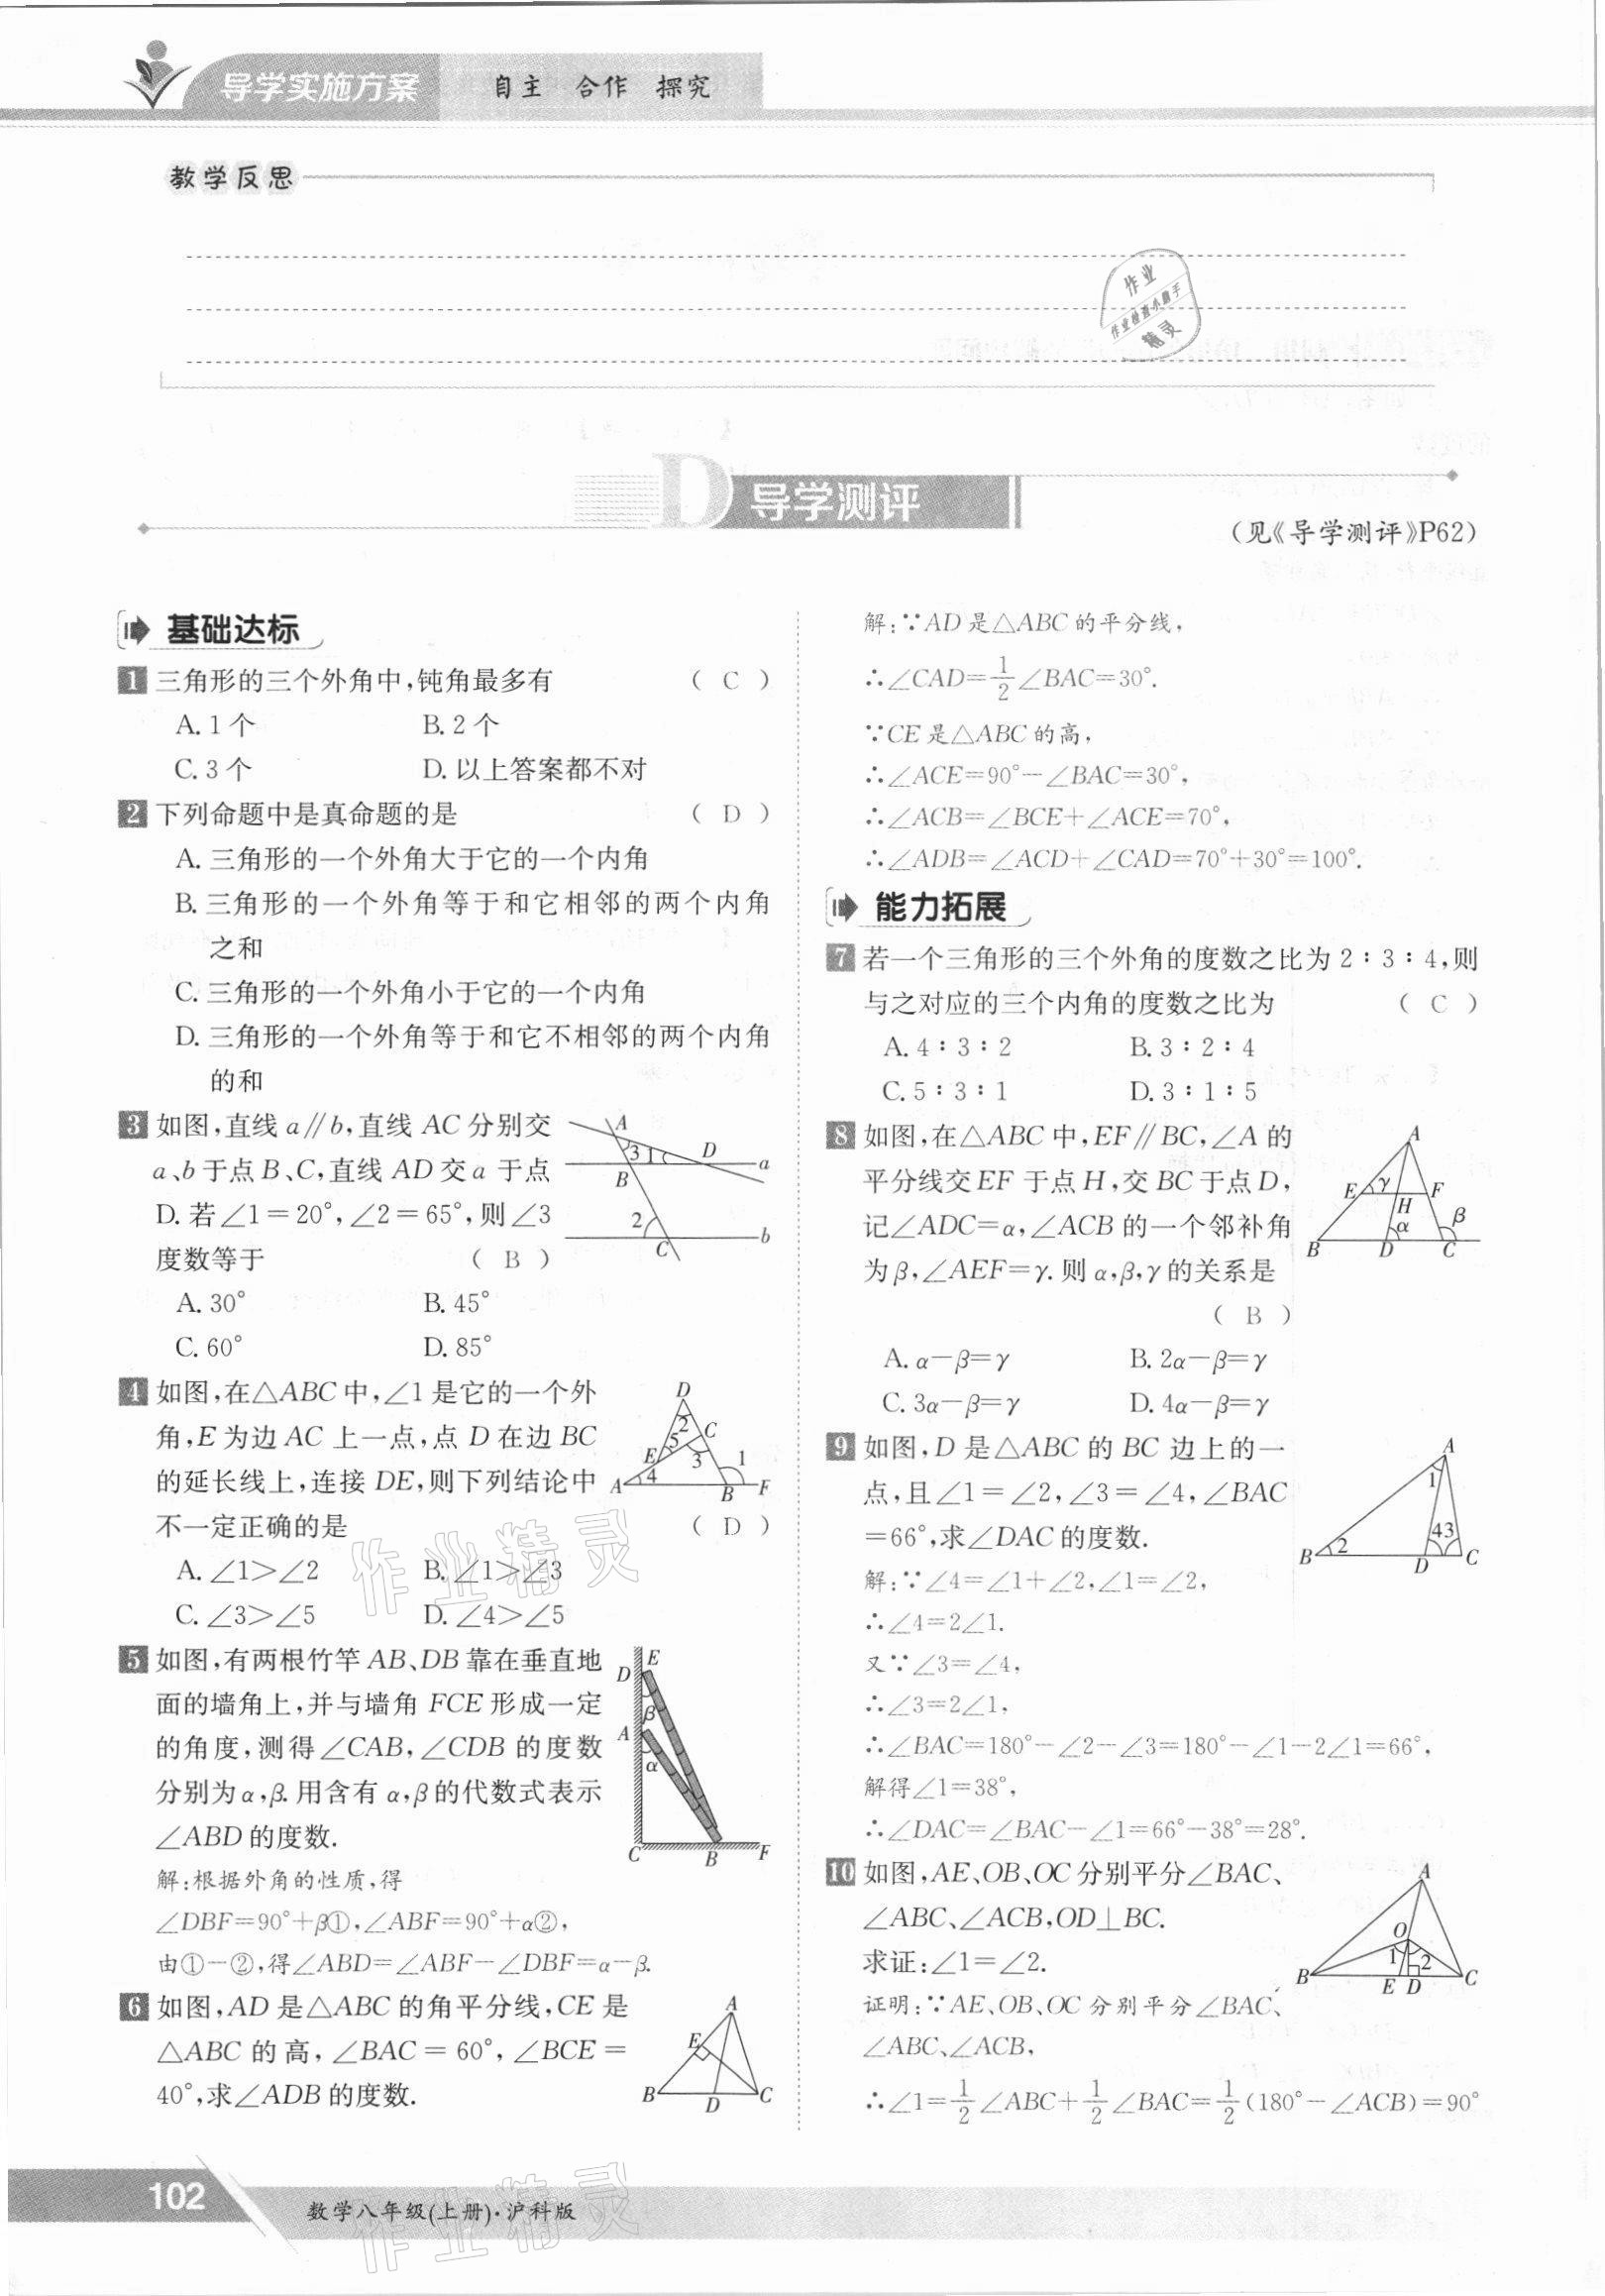 导学实施方案 自主 合作 探究
教学反思
作业
作业检查小助手
精灵
D 导学测评
(见《导学测评》P62)
基础达标
1 三角形的三个外角中,钝角最多有 ( C )
A. 1 个 B. 2 个
C. 3 个 D. 以上答案都不对
2 下列命题中是真命题的是 ( D )
A. 三角形的一个外角大于它的一个内角
B. 三角形的一个外角等于和它相邻的两个内角
之和
C. 三角形的一个外角小于它的一个内角
D. 三角形的一个外角等于和它不相邻的两个内角
的和
3 如图,直线 a∥b,直线 AC 分别交
a、b于点 B、C,直线 AD 交 a 于点
D. 若∠1=20°,∠2=65°,则∠3
度数等于 ( B )
A. 30° B. 45°
C. 60° D. 85°
A 3 1 D a B 2 C b
4 如图,在△ABC 中,∠1 是它的一个外
角,E 为边 AC 上一点,点 D 在边 BC
的延长线上,连接 DE,则下列结论中
不一定正确的是 ( D )
A. ∠1>∠2 B. ∠1>∠3
C. ∠3>∠5 D. ∠4>∠5
D 2 C E 5 3 1 A 4 B F
5 如图,有两根竹竿 AB、DB 靠在垂直地
面的墙角上,并与墙角 FCE 形成一定
的角度,测得∠CAB,∠CDB 的度数
分别为α,β. 用含有α,β的代数式表示
∠ABD 的度数.
E D β A α C B F
解:根据外角的性质,得
∠DBF=90°+β①,∠ABF=90°+α②,
由①-②,得∠ABD=∠ABF-∠DBF=α-β.
6 如图,AD 是△ABC 的角平分线,CE 是
△ABC 的高,∠BAC=60°,∠BCE=
40°,求∠ADB 的度数.
A E B D C
解:∵AD 是△ABC 的平分线,
∴∠CAD=1/2∠BAC=30°.
∵CE 是△ABC 的高,
∴∠ACE=90°-∠BAC=30°,
∴∠ACB=∠BCE+∠ACE=70°,
∴∠ADB=∠ACD+∠CAD=70°+30°=100°.
能力拓展
7 若一个三角形的三个外角的度数之比为 2∶3∶4,则
与之对应的三个内角的度数之比为 ( C )
A. 4∶3∶2 B. 3∶2∶4
C. 5∶3∶1 D. 3∶1∶5
8 如图,在△ABC 中,EF∥BC,∠A 的
平分线交 EF 于点 H,交 BC 于点 D,
记∠ADC=α,∠ACB 的一个邻补角
为β,∠AEF=γ. 则α,β,γ的关系是
( B )
A. α-β=γ B. 2α-β=γ
C. 3α-β=γ D. 4α-β=γ
A E γ F H α β B D C
9 如图,D 是△ABC 的 BC 边上的一
点,且∠1=∠2,∠3=∠4,∠BAC
=66°,求∠DAC 的度数.
A 1 B 2 4 3 D C
解:∵∠4=∠1+∠2,∠1=∠2,
∴∠4=2∠1.
又∵∠3=∠4,
∴∠3=2∠1,
∴∠BAC=180°-∠2-∠3=180°-∠1-2∠1=66°,
解得∠1=38°,
∴∠DAC=∠BAC-∠1=66°-38°=28°.
10 如图,AE、OB、OC 分别平分∠BAC、
∠ABC、∠ACB,OD⊥BC.
求证:∠1=∠2.
A O 1 2 B E D C
证明:∵AE、OB、OC 分别平分∠BAC、
∠ABC、∠ACB,
∴∠1=1/2∠ABC+1/2∠BAC=1/2(180°-∠ACB)=90°
作业精灵
102 数学八年级(上册)·沪科版
作业精灵